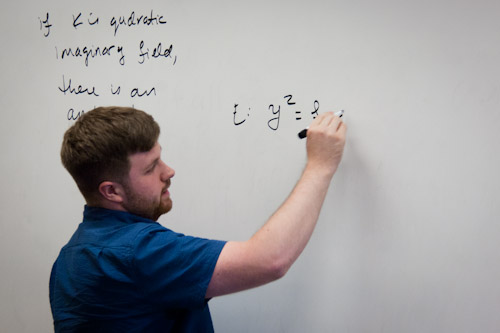 if K is quadratic
imaginary field,
there is an
E: y² =